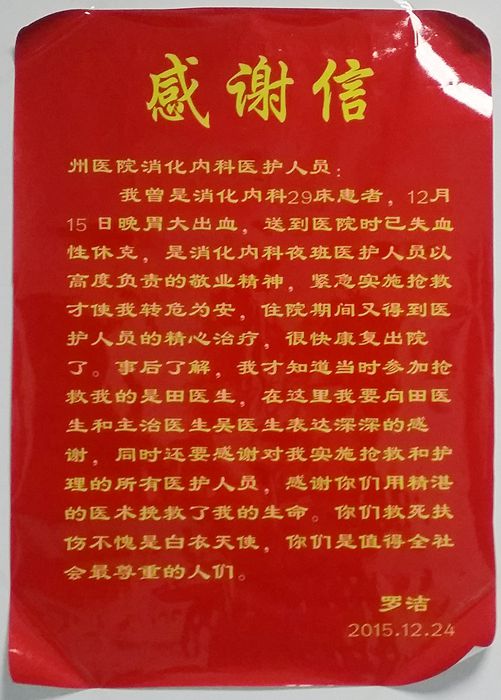 感谢信
州医院消化内科医护人员：
我曾是消化内科29床患者，12月
15日晚胃大出血，送到医院时已失血
性休克，是消化内科夜班医护人员以
高度负责的敬业精神，紧急实施抢救
才使我转危为安，住院期间又得到医
护人员的精心治疗，很快康复出院
了。事后了解，我才知道当时参加抢
救我的是田医生，在这里我要向田医
生和主治医生吴医生表达深深的感
谢，同时还要感谢对我实施抢救和护
理的所有医护人员，感谢你们用精湛
的医术挽救了我的生命。你们救死扶
伤不愧是白衣天使，你们是值得全社
会最尊重的人们。
罗洁
2015.12.24